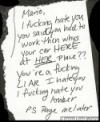 Mario,
I fucking hate you
you said you had to
work then whys
your car HERE
at HER place??
you're a fucking
LIAR I hate you
I fucking hate you
Amber
PS Page me later